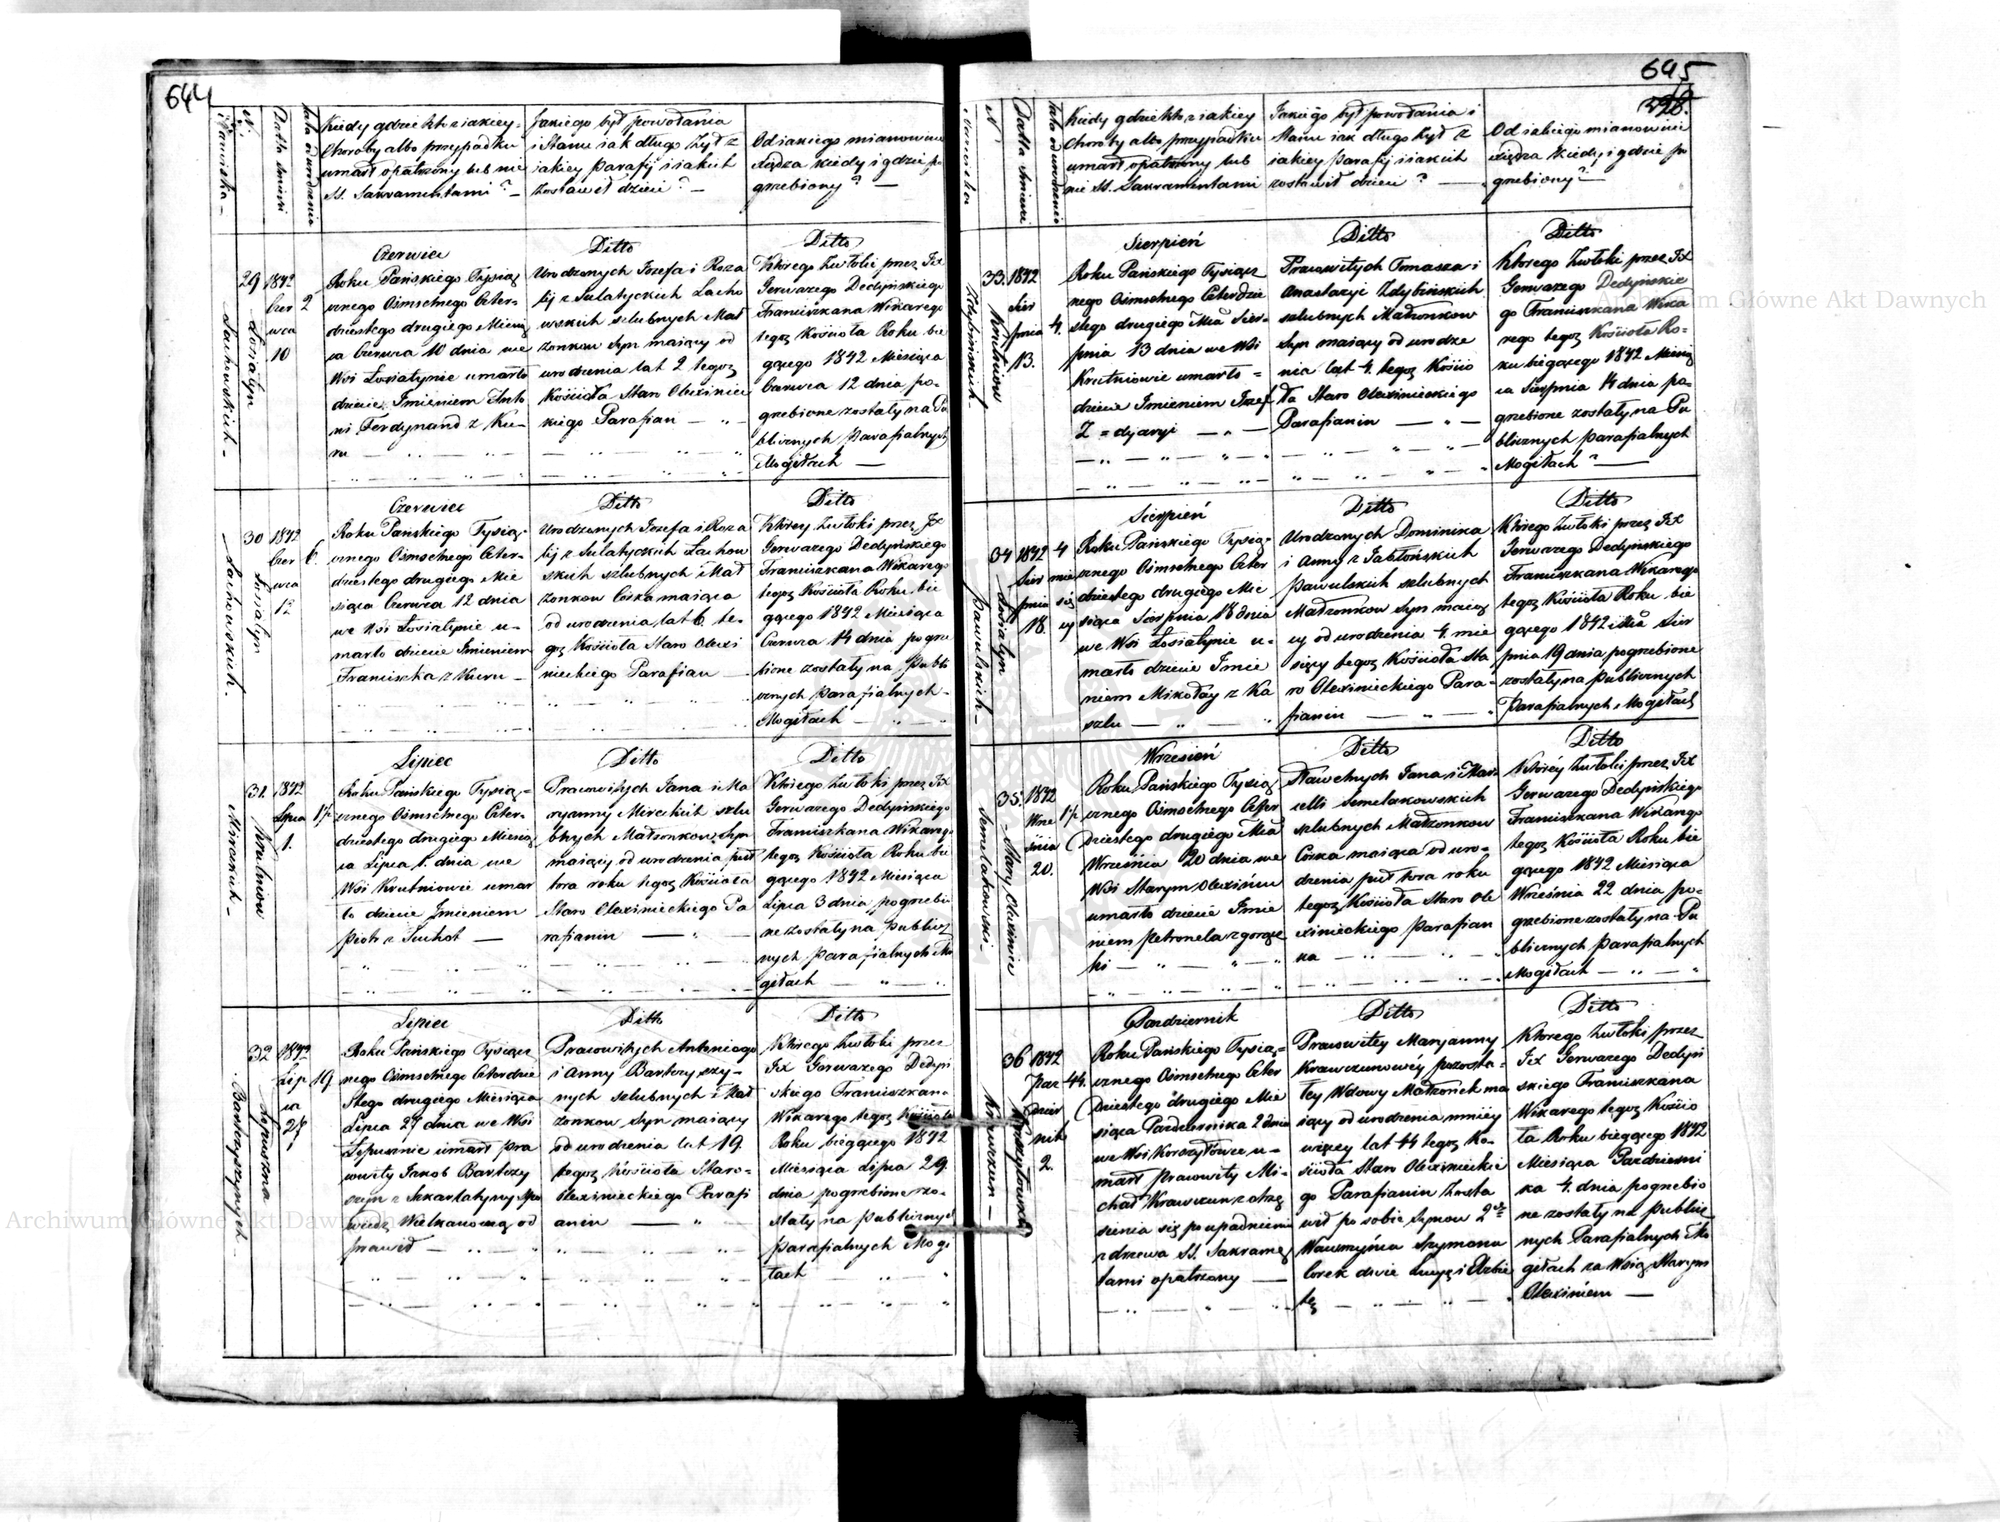 644
Nazwiska
N.
Data śmierci
Lata od urodzenia
Kiedy gdzie kto z iakiey
Choroby albo przypadku
umarł opatrzony lub nie
SS. Sakramentami? —
Jakiego był powołania
i Stanu iak długo żył z
iakiey Parafij i iakich
zostawił dzieci? —
Od iakiego mianowicie
xiędza kiedy i gdzie po
grzebiony? —
Lachowskich —
29
Łosiatyn
1842
Czer
wca
10
2
Czerwiec
Roku Pańskiego Tysiąc
znego Ośmsetnego Czter-
dziestego drugiego Miesią
ca Czerwca 10 dnia we
Wsi Łosiatynie umarło
dziecie Imieniem Anto
ni Ferdynand z Ku-
ru —
Ditto
Urodzonych Jozefa i Roza
lij z Sulatyckich Lacho
wskich szlubnych Mał
żonkow Syn maiący od
urodzenia lat 2 tegoż
Kościoła Staro Olexiniec
kiego Parafian —
Ditto
Którego Zwłoki przez JX
Gerwazego Dedyńskiego
Franciszkana Wikarego
tegoż Kościoła Roku bie
gącego 1842 Miesiąca
Czerwca 12 dnia po-
grzebione zostały na Pu
blicznych Parafialnych
Mogiłach —
Lachowskich.
30
Łosiatyn
1842
Czer
wca
12
6.
Czerwiec
Roku Pańskiego Tysią-
cznego Ośmsetnego Czter-
dziestego drugiego Mie
siąca Czerwca 12 dnia
we Wsi Łosiatynie u-
marło dziecie Imieniem
Franciszka z Kuru —
Ditto
Urodzonych Jozefa i Roza
lij z Sulatyckich Lachow
skich szlubnych Mał
żonkow Corka maiąca
od urodzenia lat 6 te-
goż Kościoła Staro Olexi
nieckiego Parafian —
Ditto
Którey Zwłoki przez JX
Gerwazego Dedyńskiego
Franciszkana Wikarego
tegoż Kościoła Roku bie
gącego 1842 Miesiąca
Czerwca 14 dnia pogrze
bione zostały na Publi
cznych Parafialnych
Mogiłach —
Mireckich —
31.
Krutniow
1842
Lipca
1.
1½
Lipiec
Roku Pańskiego Tysią-
cznego Ośmsetnego Czter-
dziestego drugiego Miesią
ca Lipca 1. dnia we
Wsi Krutniowie umar
ło dziecie Imieniem
Piotr z Suchot —
Ditto
Pracowitych Jana i Ma
ryanny Mireckich szlu
bnych Małżonkow Syn
maiący od urodzenia puł
tora roku tegoż Kościoła
Staro Olexinieckiego Pa
rafianin —
Ditto
Którego Zwłoki przez JX
Gerwazego Dedyńskiego
Franciszkana Wikarego
tegoż Kościoła Roku bie
gącego 1842 Miesiąca
Lipca 3 dnia pogrzebio
ne zostały na Publicz
nych Parafialnych Mo
giłach —
Bartczyszynych —
32
Łopuszna
1842
Lip
ca
27
19.
Lipiec
Roku Pańskiego Tysiącz
nego Ośmsetnego Czterdzie
stego drugiego Miesiąca
Lipca 27 dnia we Wsi
Łopusznie umarł pra
cowity Jakob Bartczy
szyn z Szkarlatyny Spo
wiedź Wielkanocną od
prawił —
Ditto
Pracowitych Antoniego
i Anny Bartczyszy-
nych szlubnych Mał
żonkow Syn maiący
od urodzenia lat 19
tegoż Kościoła Staro-
olexinieckiego Parafi
anin —
Ditto
Którego Zwłoki przez
JX Gerwazego Dedyń
skiego Franciszkana
Wikarego tegoż Kościoła
Roku biegącego 1842
Miesiąca Lipca 29.
dnia pogrzebione zo-
stały na Publicznych
Parafialnych Mogi
łach
645
328.
Nazwiska
N
Data śmierci
Lata od urodzenia
Kiedy gdzie kto z iakiey
Choroby albo przypadku
umarł opatrzony lub
nie SS. Sakramentami
Jakiego był powołania i
Stanu iak długo żył z
iakiey Parafij i iakich
zostawił dzieci? —
Od iakiego mianowicie
xiędza kiedy i gdzie po
grzebiony? —
Zdybińskich —
33.
Krutniow
1842
Sier
pnia
13.
4.
Sierpień
Roku Pańskiego Tysiącz
nego Ośmsetnego Czterdzie
stego drugiego Mca Sier-
pnia 13 dnia we Wsi
Krutniowie umarło =
dziecie Imieniem Jozef
Z = dyaryi —
Ditto
Pracowitych Tomasza i
Anastazyi Zdybińskich
szlubnych Małżonkow
Syn maiący od urodze
nia lat 4. tegoż Kościo
ła Staro Olexinieckiego
Parafianin —
Ditto
Którego Zwłoki przez JX
Gerwazego Dedyńskie
go Franciszkana Wika
rego tegoż Kościoła Ro-
ku biegącego 1842 Miesią
ca Sierpnia 14 dnia po-
grzebione zostały na Pu
blicznych Parafialnych
Mogiłach —
Pawulskich —
34
Łosiatyn
1842
Sier
pnia
18.
4
mie
się
cy
Sierpień
Roku Pańskiego Tysią-
cznego Ośmsetnego Czter
dziestego drugiego Mie
siąca Sierpnia 18 dnia
we Wsi Łosiatynie u-
marło dziecie Imie
niem Mikołay z Ka
szlu —
Ditto
Urodzonych Dominika
i Anny z Jabłońskich
Pawulskich szlubnych
Małżonkow Syn maiąc
cy od urodzenia 4. mie
sięcy tegoż Kościoła Sta
ro Olexinieckiego Para-
fianin —
Ditto
Którego Zwłoki przez JX
Gerwazego Dedyńskiego
Franciszkana Wikarego
tegoż Kościoła Roku bie
gącego 1842 Mca Sier
pnia 19 dnia pogrzebione
zostały na Publicznych
Parafialnych Mogiłach
Semelakowski.
35.
Stary Olexiniec
1842
Wrze
śnia
20.
1½
Wrzesień
Roku Pańskiego Tysią
cznego Ośmsetnego Czter
dziestego drugiego Mca
Września 20 dnia we
Wsi Starym Olexińcu
umarło dziecie Imie
niem Petronela z gorącz
ki —
Ditto
Sławetnych Jana i Mar
celli Semelakowskich
szlubnych Małżonkow
Corka maiąca od uro-
dzenia puł tora roku
tegoż Kościoła Staro Ole
xinieckiego Parafian
ka —
Ditto
Którey Zwłoki przez JX
Gerwazego Dedyńskiego
Franciszkana Wikarego
tegoż Kościoła Roku bie
gącego 1842 Miesiąca
Września 22 dnia po-
grzebione zostały na Pu
blicznych Parafialnych
Mogiłach —
Krawczun —
36
Korczytowka
1842
Paz
dzier
nik
2.
44.
Pazdziernik
Roku Pańskiego Tysią-
cznego Ośmsetnego Czter
dziestego drugiego Mie
siąca Pazdziernika 2 dnia
we Wsi Korczytowce u-
marł Pracowity Mi-
chał Krawczun z otrzę
sienia się po upadnieniu
z drzewa SS. Sakramen
tami opatrzony —
Ditto
Pracowitey Maryanny
Krawczunowéy pozosta-
łey Wdowy Małżonek ma
iący od urodzenia mniey
więcey lat 44 tegoż Ko-
ścioła Staro Olexinieckie
go Parafianin Zosta
wił po sobie Synow 2ch
Wawrzyńca Szymona
Corek dwie Łucyę i Elżbie
tę —
Ditto
Którego Zwłoki przez
JX Gerwazego Dedyń
skiego Franciszkana
Wikarego tegoż Kościo
ła Roku biegącego 1842
Miesiąca Pazdzierni
ka 4. dnia pogrzebio
ne zostały na Publicz
nych Parafialnych Mo
giłach za Wsią Starym
Olexińcem —
Archiwum Główne Akt Dawnych
Archiwum Główne Akt Dawnych